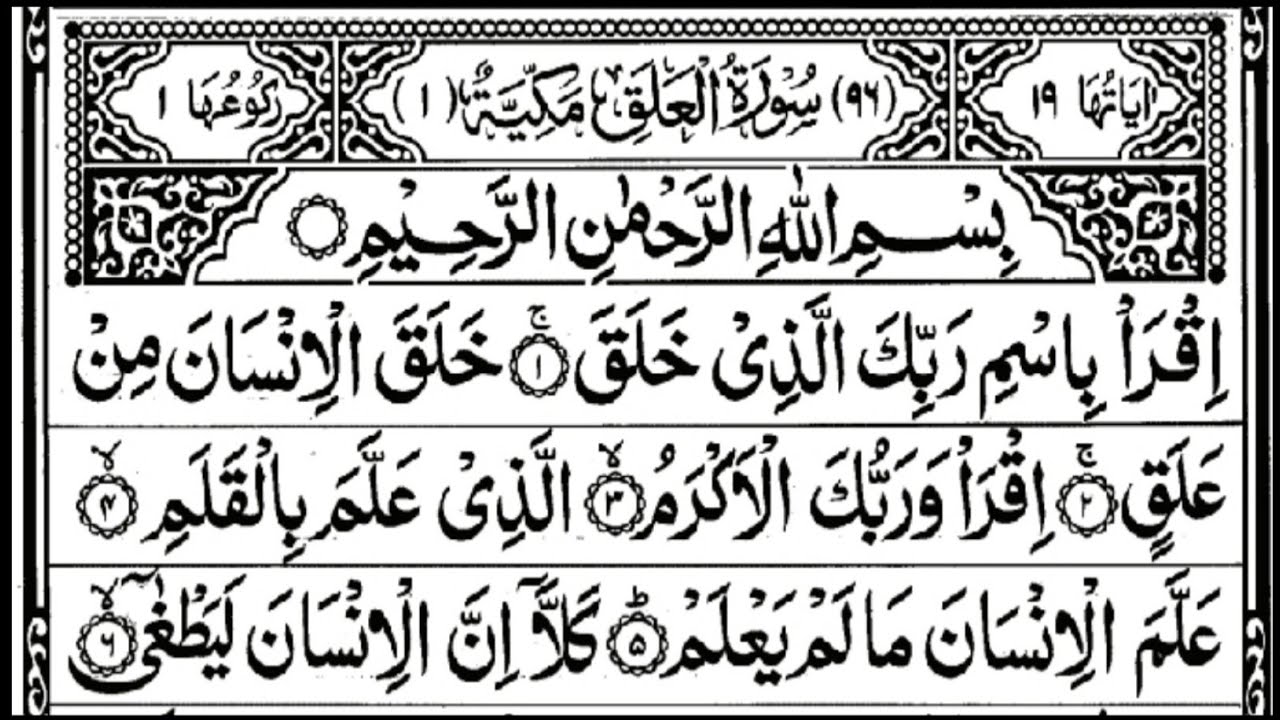 اٰيَاتُهَا ١٩ (٩٦) سُوْرَةُ الْعَلَقِ مَكِّيَّةٌ (١) رُكُوْعُهَا ١
بِسْمِ اللّٰهِ الرَّحْمٰنِ الرَّحِيْمِ ۝
اِقْرَاْ بِاسْمِ رَبِّكَ الَّذِىْ خَلَقَ ۚ‏﴿۱﴾ خَلَقَ الْاِنْسَانَ مِنْ
عَلَقٍ ۚ‏﴿۲﴾ اِقْرَاْ وَرَبُّكَ الْاَكْرَمُ ۙ‏﴿۳﴾ الَّذِىْ عَلَّمَ بِالْقَلَمِ ۙ‏﴿۴﴾
عَلَّمَ الْاِنْسَانَ مَا لَمْ يَعْلَمْ ؕ‏﴿۵﴾ كَلَّاۤ اِنَّ الْاِنْسَانَ لَيَطْغٰٓى ۙ‏﴿۶﴾